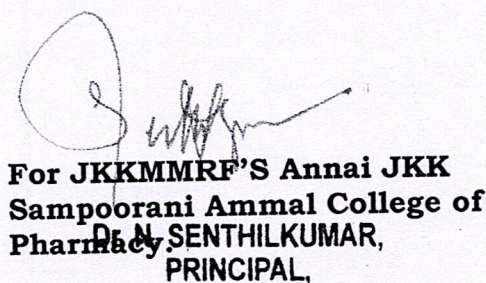 For JKKMMRF'S Annai JKK
Sampoorani Ammal College of
Pharmacy.
Dr. N. SENTHILKUMAR,
PRINCIPAL,